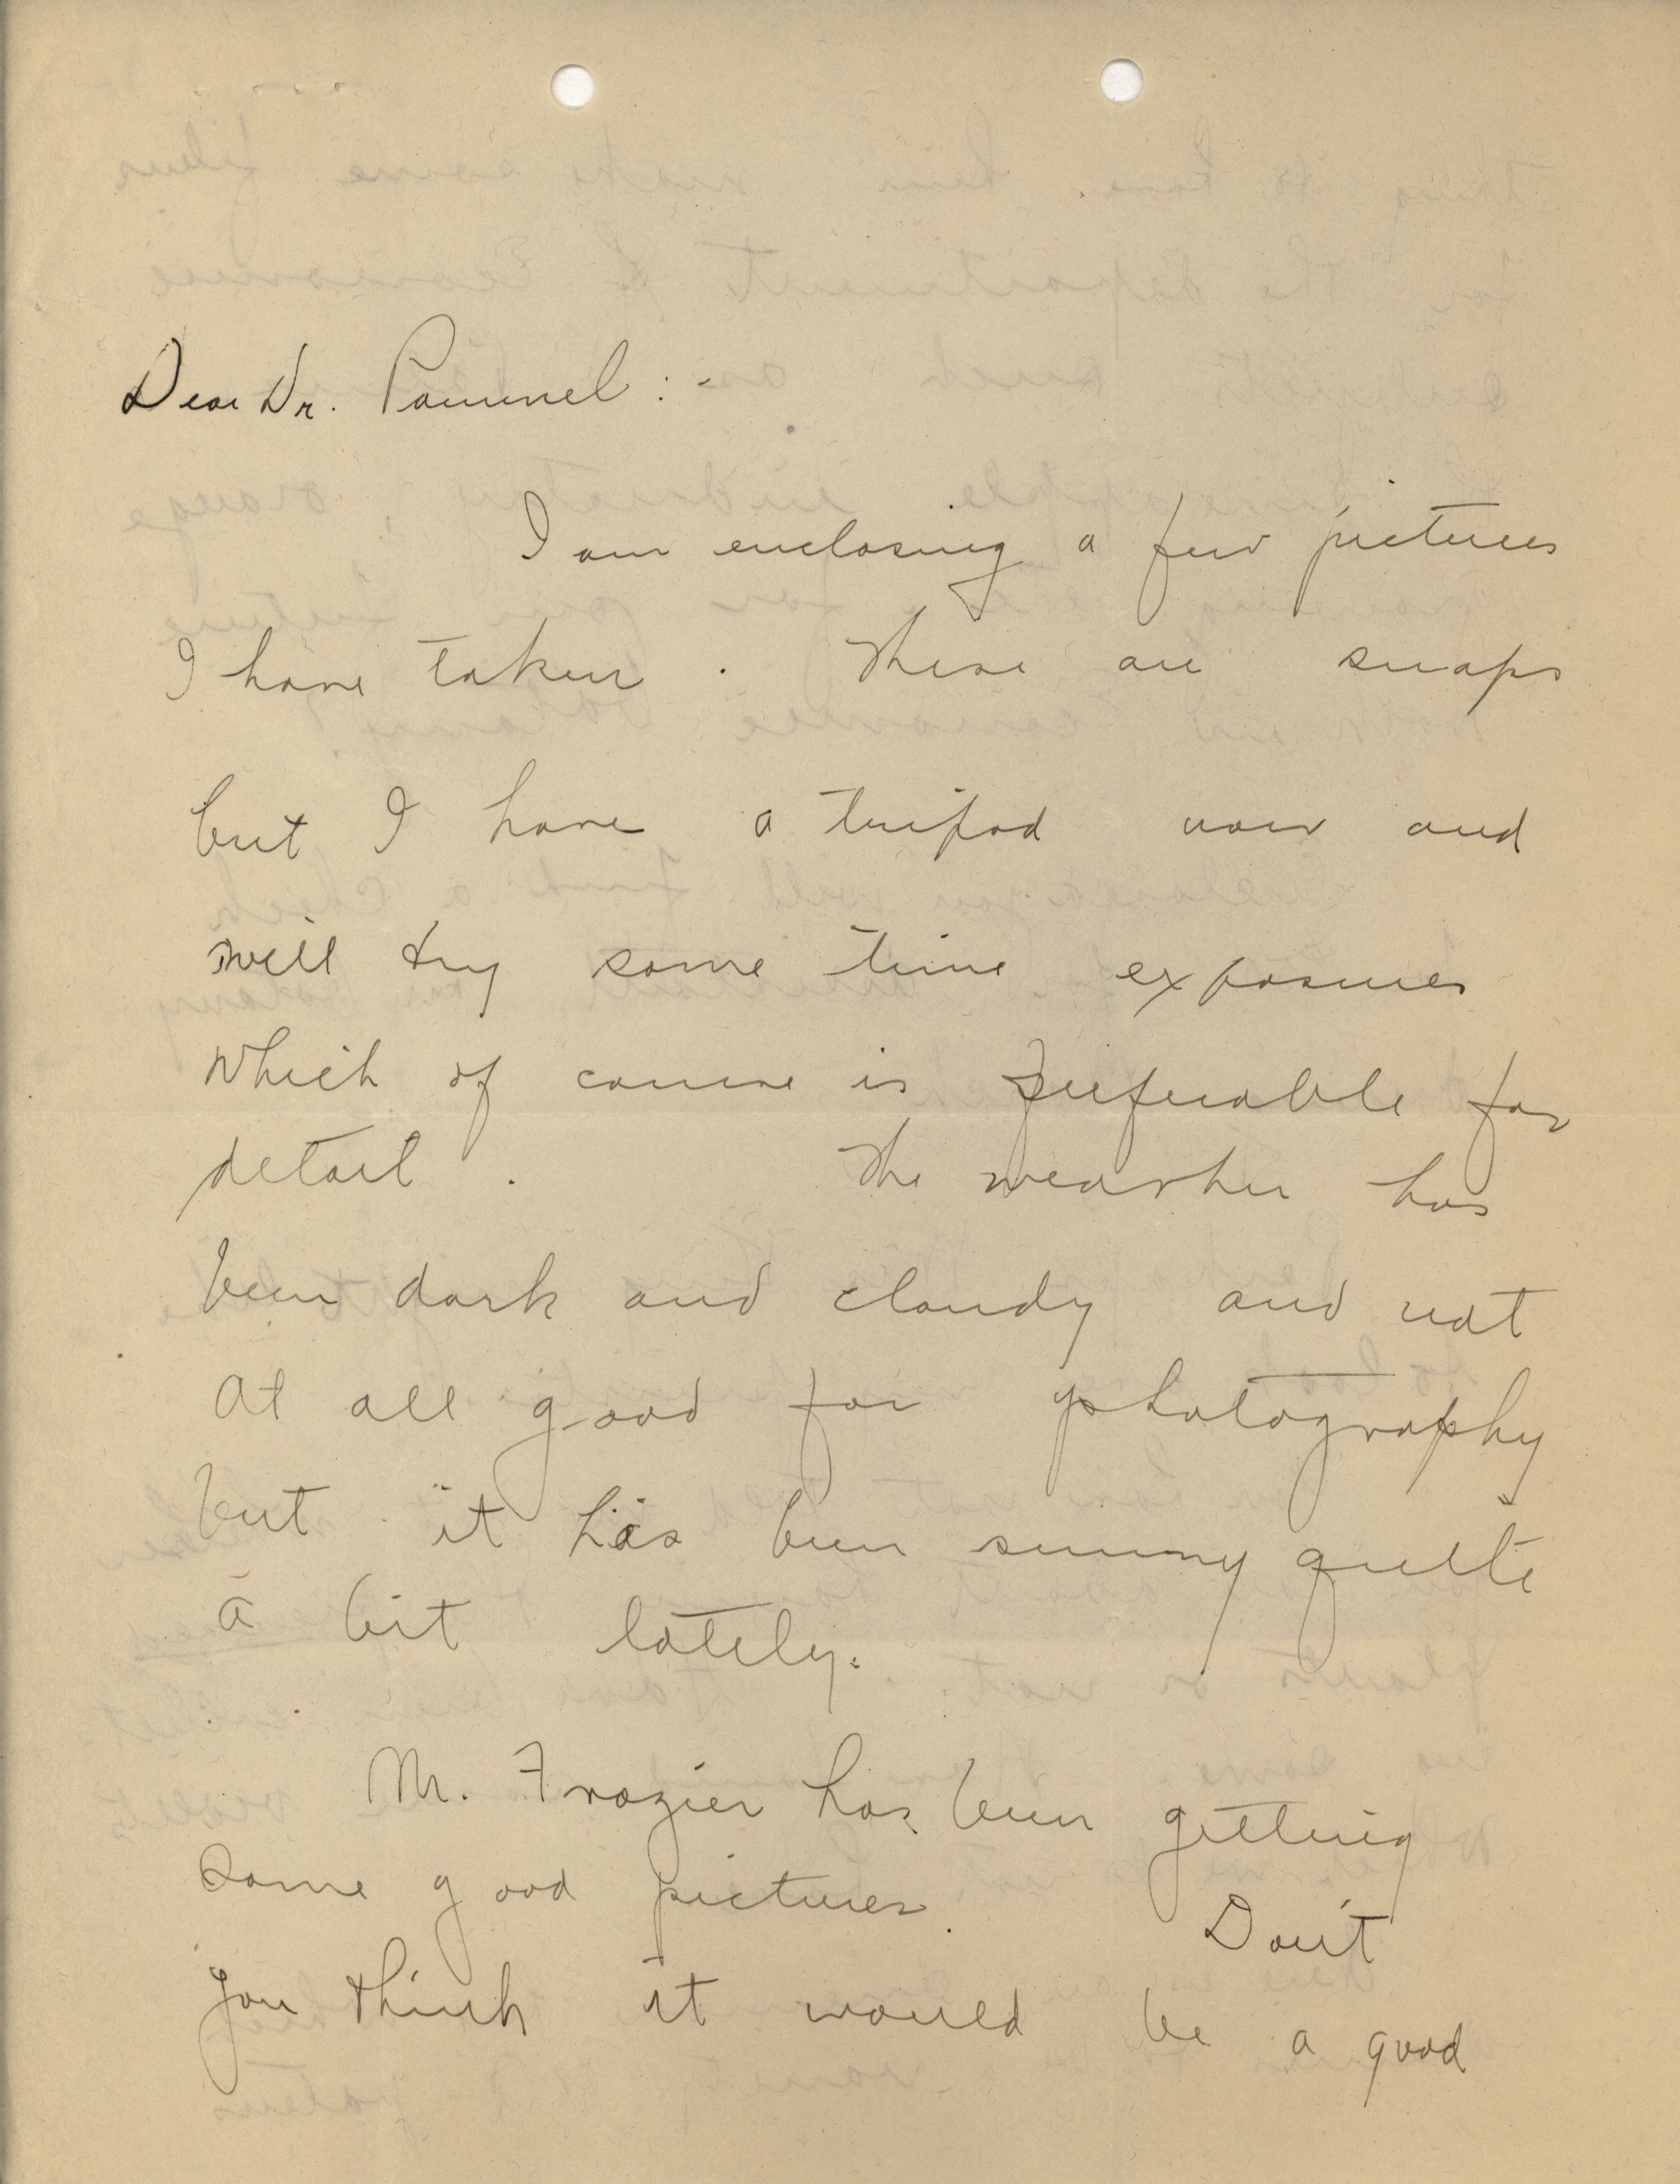 Dear Dr. Pammel:-
I am enclosing a few pictures
I have taken. These are snaps
but I have a tripod now and
will try some time exposures
which of course is preferable for
detail. The weather has
been dark and cloudy and not
at all good for photography
but it has been sunny quite
a bit lately.
Mr. Frazier has been getting
some good pictures. Don't
you think it would be a good